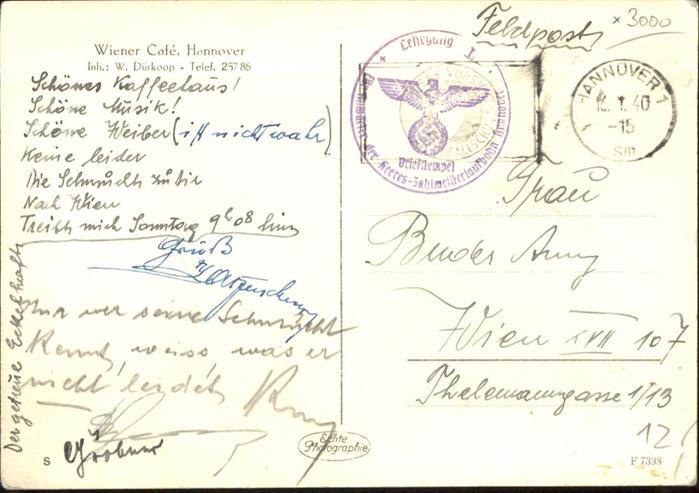 Wiener Café, Hannover
Inh.: W. Dürkoop - Telef. 25786
Schönes Kaffeehaus!
Schöne Musik!
Schöne Weiber (ist nicht wahr)
Keine leider
Die Sehnsucht zu dir
Nach Wien
Treibt mich Sonntag 9h 08 hin
Gruß
Nur wer seine Sehnsucht
Kennt, weiss was er
nicht leidet
Der getreue Eckehaft
S
Echte
Photographie
Feldpost
x 3000
Lehrgang I.
der Heeres-Zahlmeisterlaufbahn Hannover
Briefstempel
HANNOVER 1
1. 40
-15
Frau
Binder Anny
Wien XVII 107
Thelemanngasse 1/13
12
F 7398